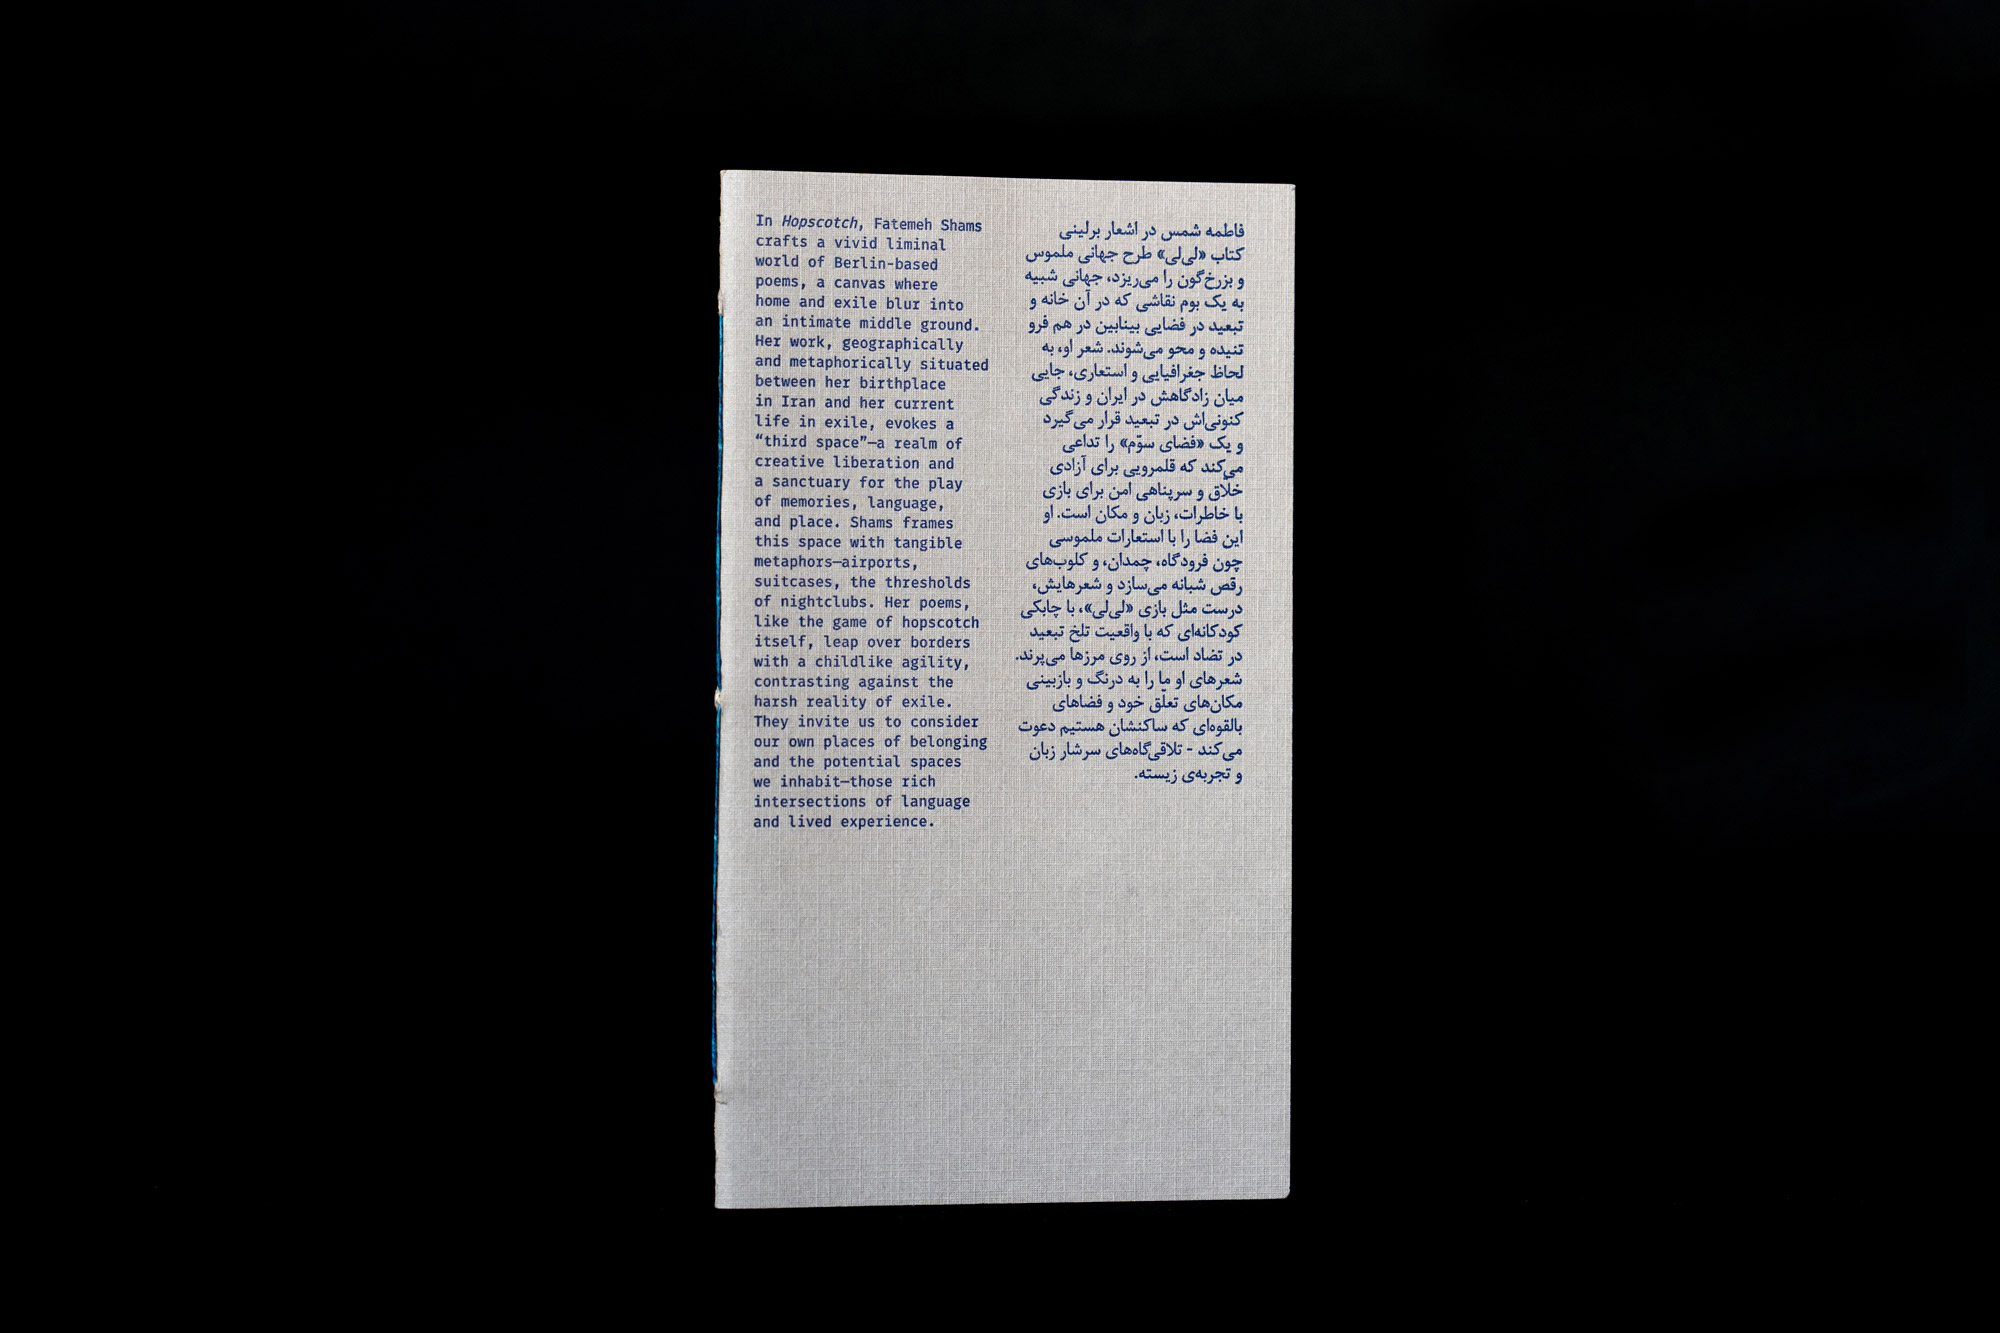 In Hopscotch, Fatemeh Shams
crafts a vivid liminal
world of Berlin-based
poems, a canvas where
home and exile blur into
an intimate middle ground.
Her work, geographically
and metaphorically situated
between her birthplace
in Iran and her current
life in exile, evokes a
“third space”—a realm of
creative liberation and
a sanctuary for the play
of memories, language,
and place. Shams frames
this space with tangible
metaphors—airports,
suitcases, the thresholds
of nightclubs. Her poems,
like the game of hopscotch
itself, leap over borders
with a childlike agility,
contrasting against the
harsh reality of exile.
They invite us to consider
our own places of belonging
and the potential spaces
we inhabit—those rich
intersections of language
and lived experience.
فاطمه شمس در اشعار برلینی
کتاب «لی‌لی» طرح جهانی ملموس
و بزرخ‌گون را می‌ریزد، جهانی شبیه
به یک بوم نقاشی که در آن خانه و
تبعید در فضایی بینابین در هم فرو
تنیده و محو می‌شوند. شعر او، به
لحاظ جغرافیایی و استعاری، جایی
میان زادگاهش در ایران و زندگی
کنونی‌اش در تبعید قرار می‌گیرد
و یک «فضای سوّم» را تداعی
می‌کند که قلمرویی برای آزادی
خلّاق و سرپناهی امن برای بازی
با خاطرات، زبان و مکان است. او
این فضا را با استعارات ملموسی
چون فرودگاه، چمدان، و کلوب‌های
رقص شبانه می‌سازد و شعرهایش،
درست مثل بازی «لی‌لی»، با چابکی
کودکانه‌ای که با واقعیت تلخ تبعید
در تضاد است، از روی مرزها می‌پرند.
شعرهای او ما را به درنگ و بازبینی
مکان‌های تعلّق خود و فضاهای
بالقوه‌ای که ساکنشان هستیم دعوت
می‌کند - تلاقی‌گاه‌های سرشار زبان
و تجربه‌ی زیسته.